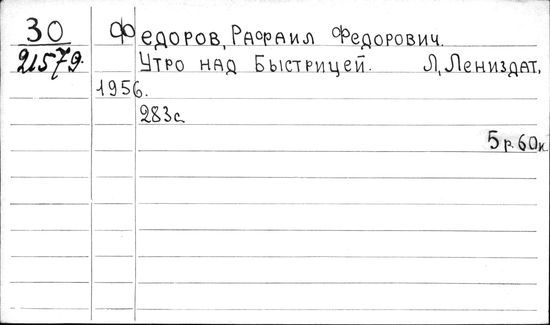 30 Федоров, Рафаил Федорович.
21579. Утро над Быстрицей. Л, Лениздат,
1956.
283с.
5р.60к.